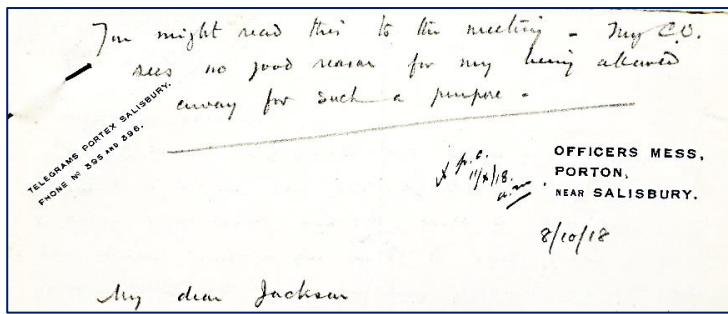 You might read this to the meeting – My C.O.
sees no good reason for my being allowed
away for such a purpose –
TELEGRAMS PORTEX SALISBURY.
PHONE Nº 395 AND 396.
p.c.
11/x/18.
a.m.
OFFICERS MESS,
PORTON,
NEAR SALISBURY.
8/10/18
My dear Jackson